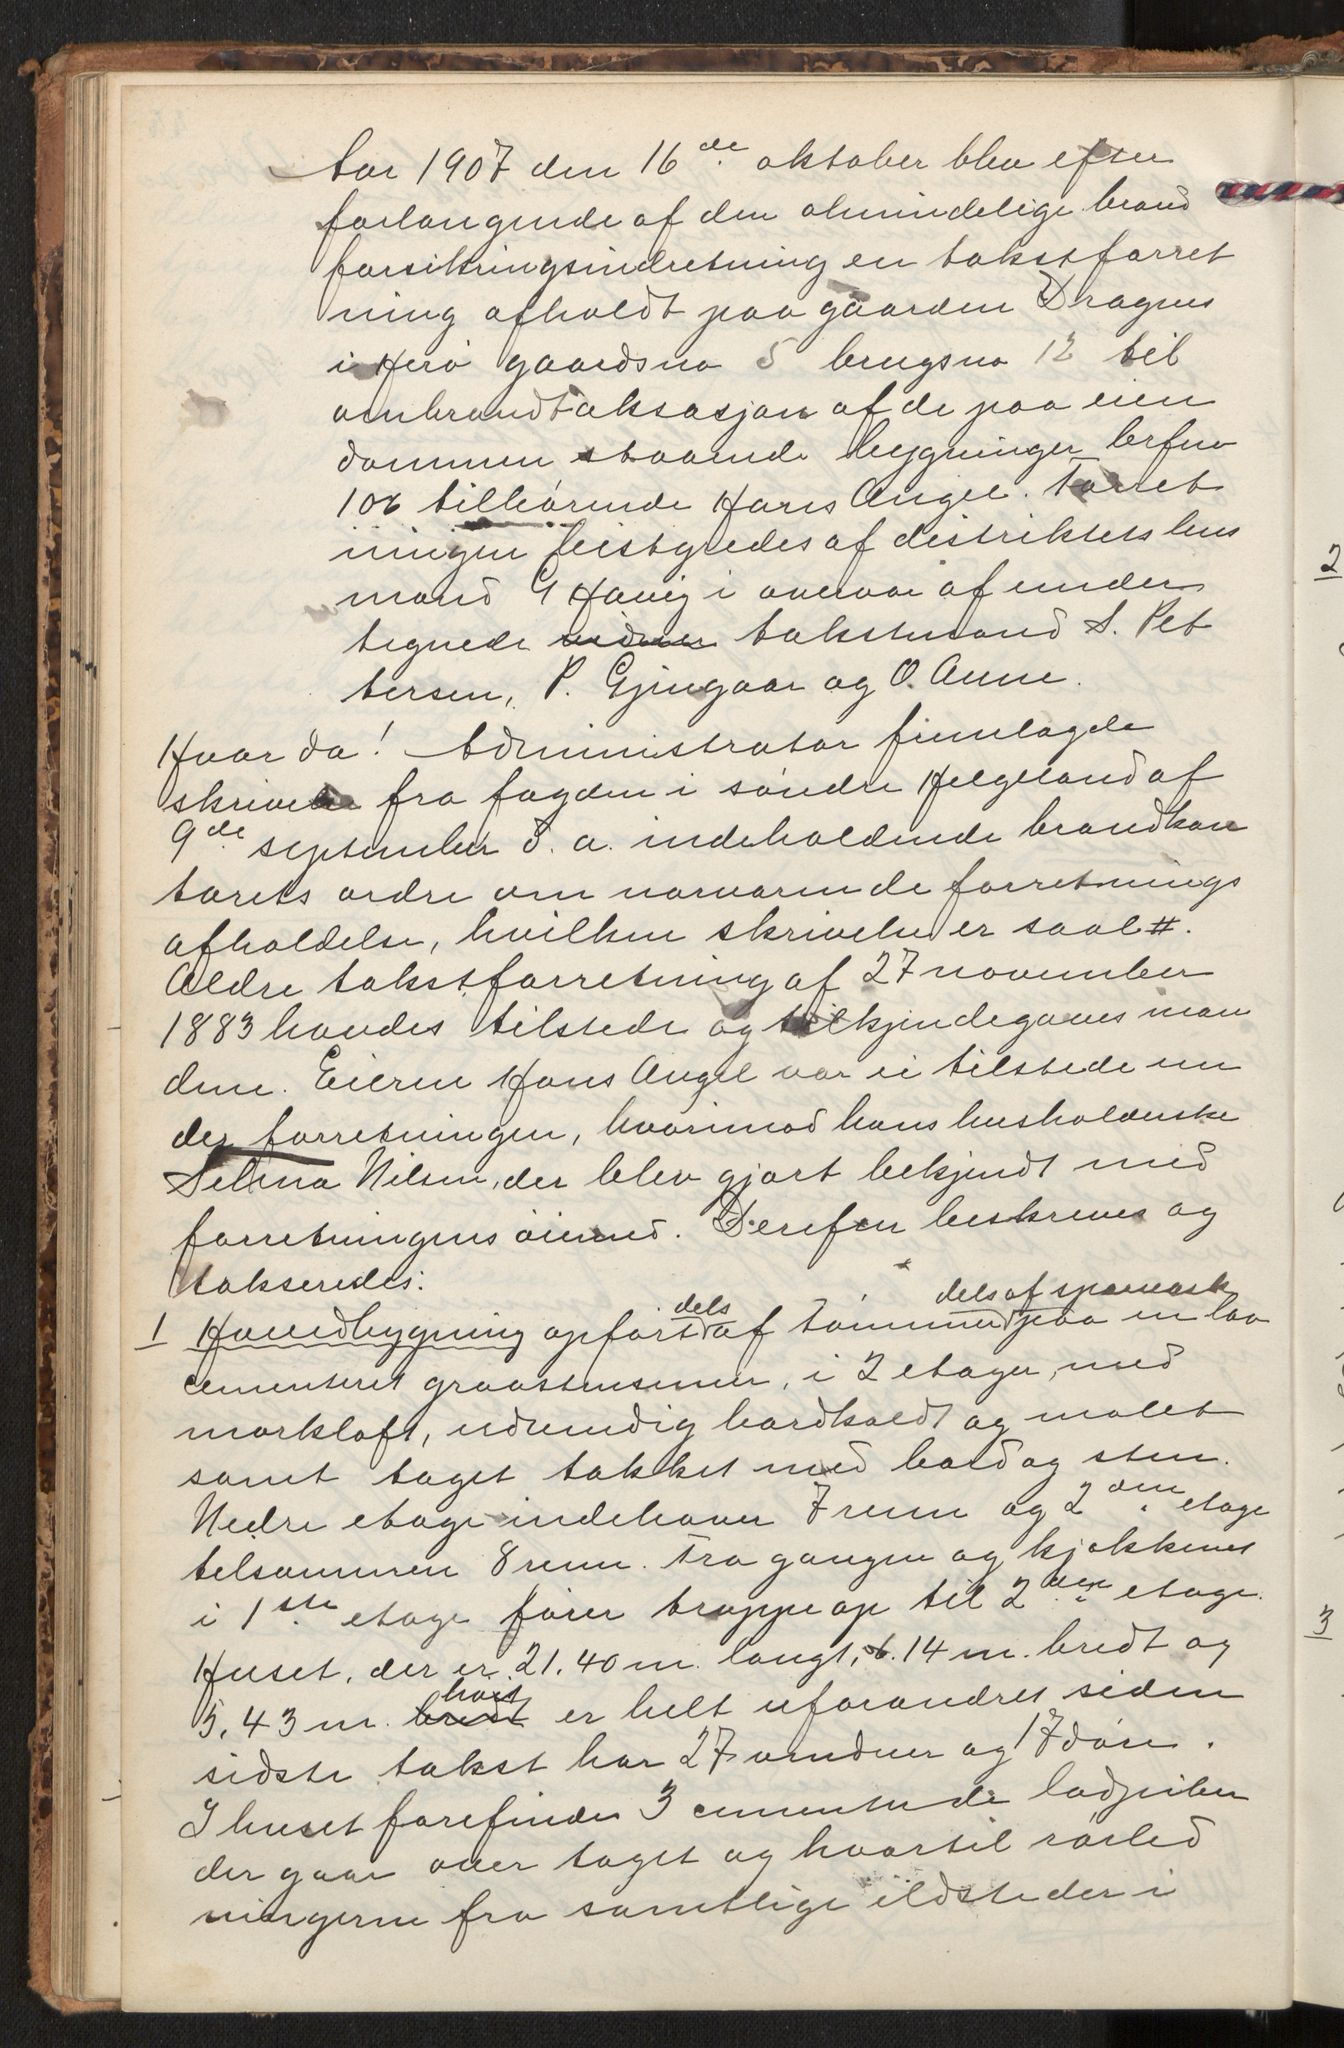 Aar 1907 den 16de oktober blev efter
forlangende af den almindelige brand
forsikringsindretning en takstforret
ning afholdt paa gaarden Dragnes
i Herø gaardsno 5 brugsno 12 til
ombrandtaksasjon af de paa eien
dommen staaende bygninger brfno
106 tilhørende Hans Angel. Forret
ningen beistyredes af distriktets lens
mand G Havig i overvær af under
tegnede vidner takstmænd S. Pet
tersen, P. Gjengaar og O. Aune.
Hvor da! Administrator fremlagde
skrivelse fra fogden i søndre Helgeland af
9de september d. a. indeholdende brandkon
torets ordre om nærværende forretnings
afholdelse, hvilken skrivelse er saal #.
Ældre takstforretning af 27 november
1883 havdes tilstede og tilkjendegaves mæn
dene. Eieren Hans Angel var ei tilstede un
der forretningen, hvorimod hans husholderske
Selma Nilsen, der blev gjort bekjendt med
forretningens øiemed. Derefter beskreves og
takseredes:
1 Hovedbygning opført dels af tømmer dels af sperverk paa en lav
cementeret graastensmur, i 2 etager, med
mørkloft, udvendig bordklædt og malet
samt taget tækket med bord og sten.
Nedre etage indehaver 7 rum og 2den etage
tilsammen 8 rum. Fra gangen og kjøkkenet
i 1ste etage fører trappe op til 2den etage.
Huset, der er 21.40 m. langt, 6.14 m. bredt og
5.43 m. bredt høit er helt uforandret siden
sidste takst har 27 vinduer og 17 døre.
I huset forefindes 3 cementerede lodpiber
der gaar over taget og hvortil rørled
ningerne fra samtlige ildsteder i
2
3